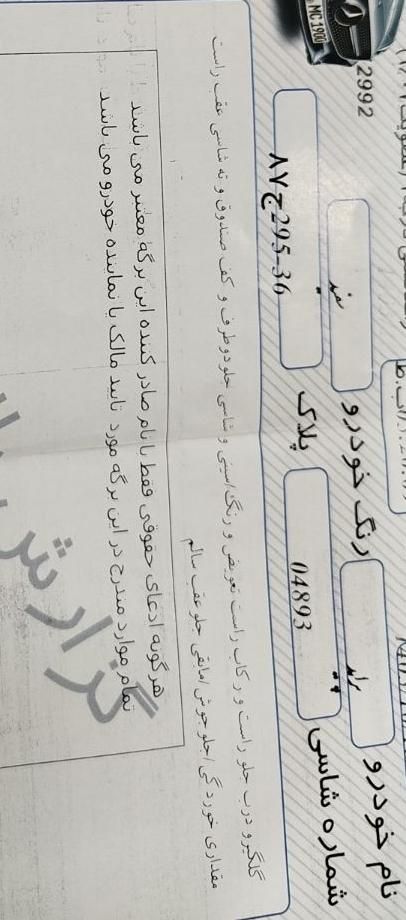 MC1900
2992
نام خودرو
پراید
رنگ خودرو
سفید
شماره شاسی
04893
پلاک
۸۷ج295-36
گلگیر و درب جلو راست و رکاب راست تعویض و رنگ/سینی و شاسی جلو دو طرف و کف صندوق و ته شاسی عقب راست
مقداری خوردگی/جلو جوش/مابقی جلو عقب سالم
هرگونه ادعای حقوقی فقط با نام صادر کننده این برگه معتبر می باشد
تمام موارد مندرج در این برگه مورد تایید مالک یا نماینده خودرو می باشد.
گزارش